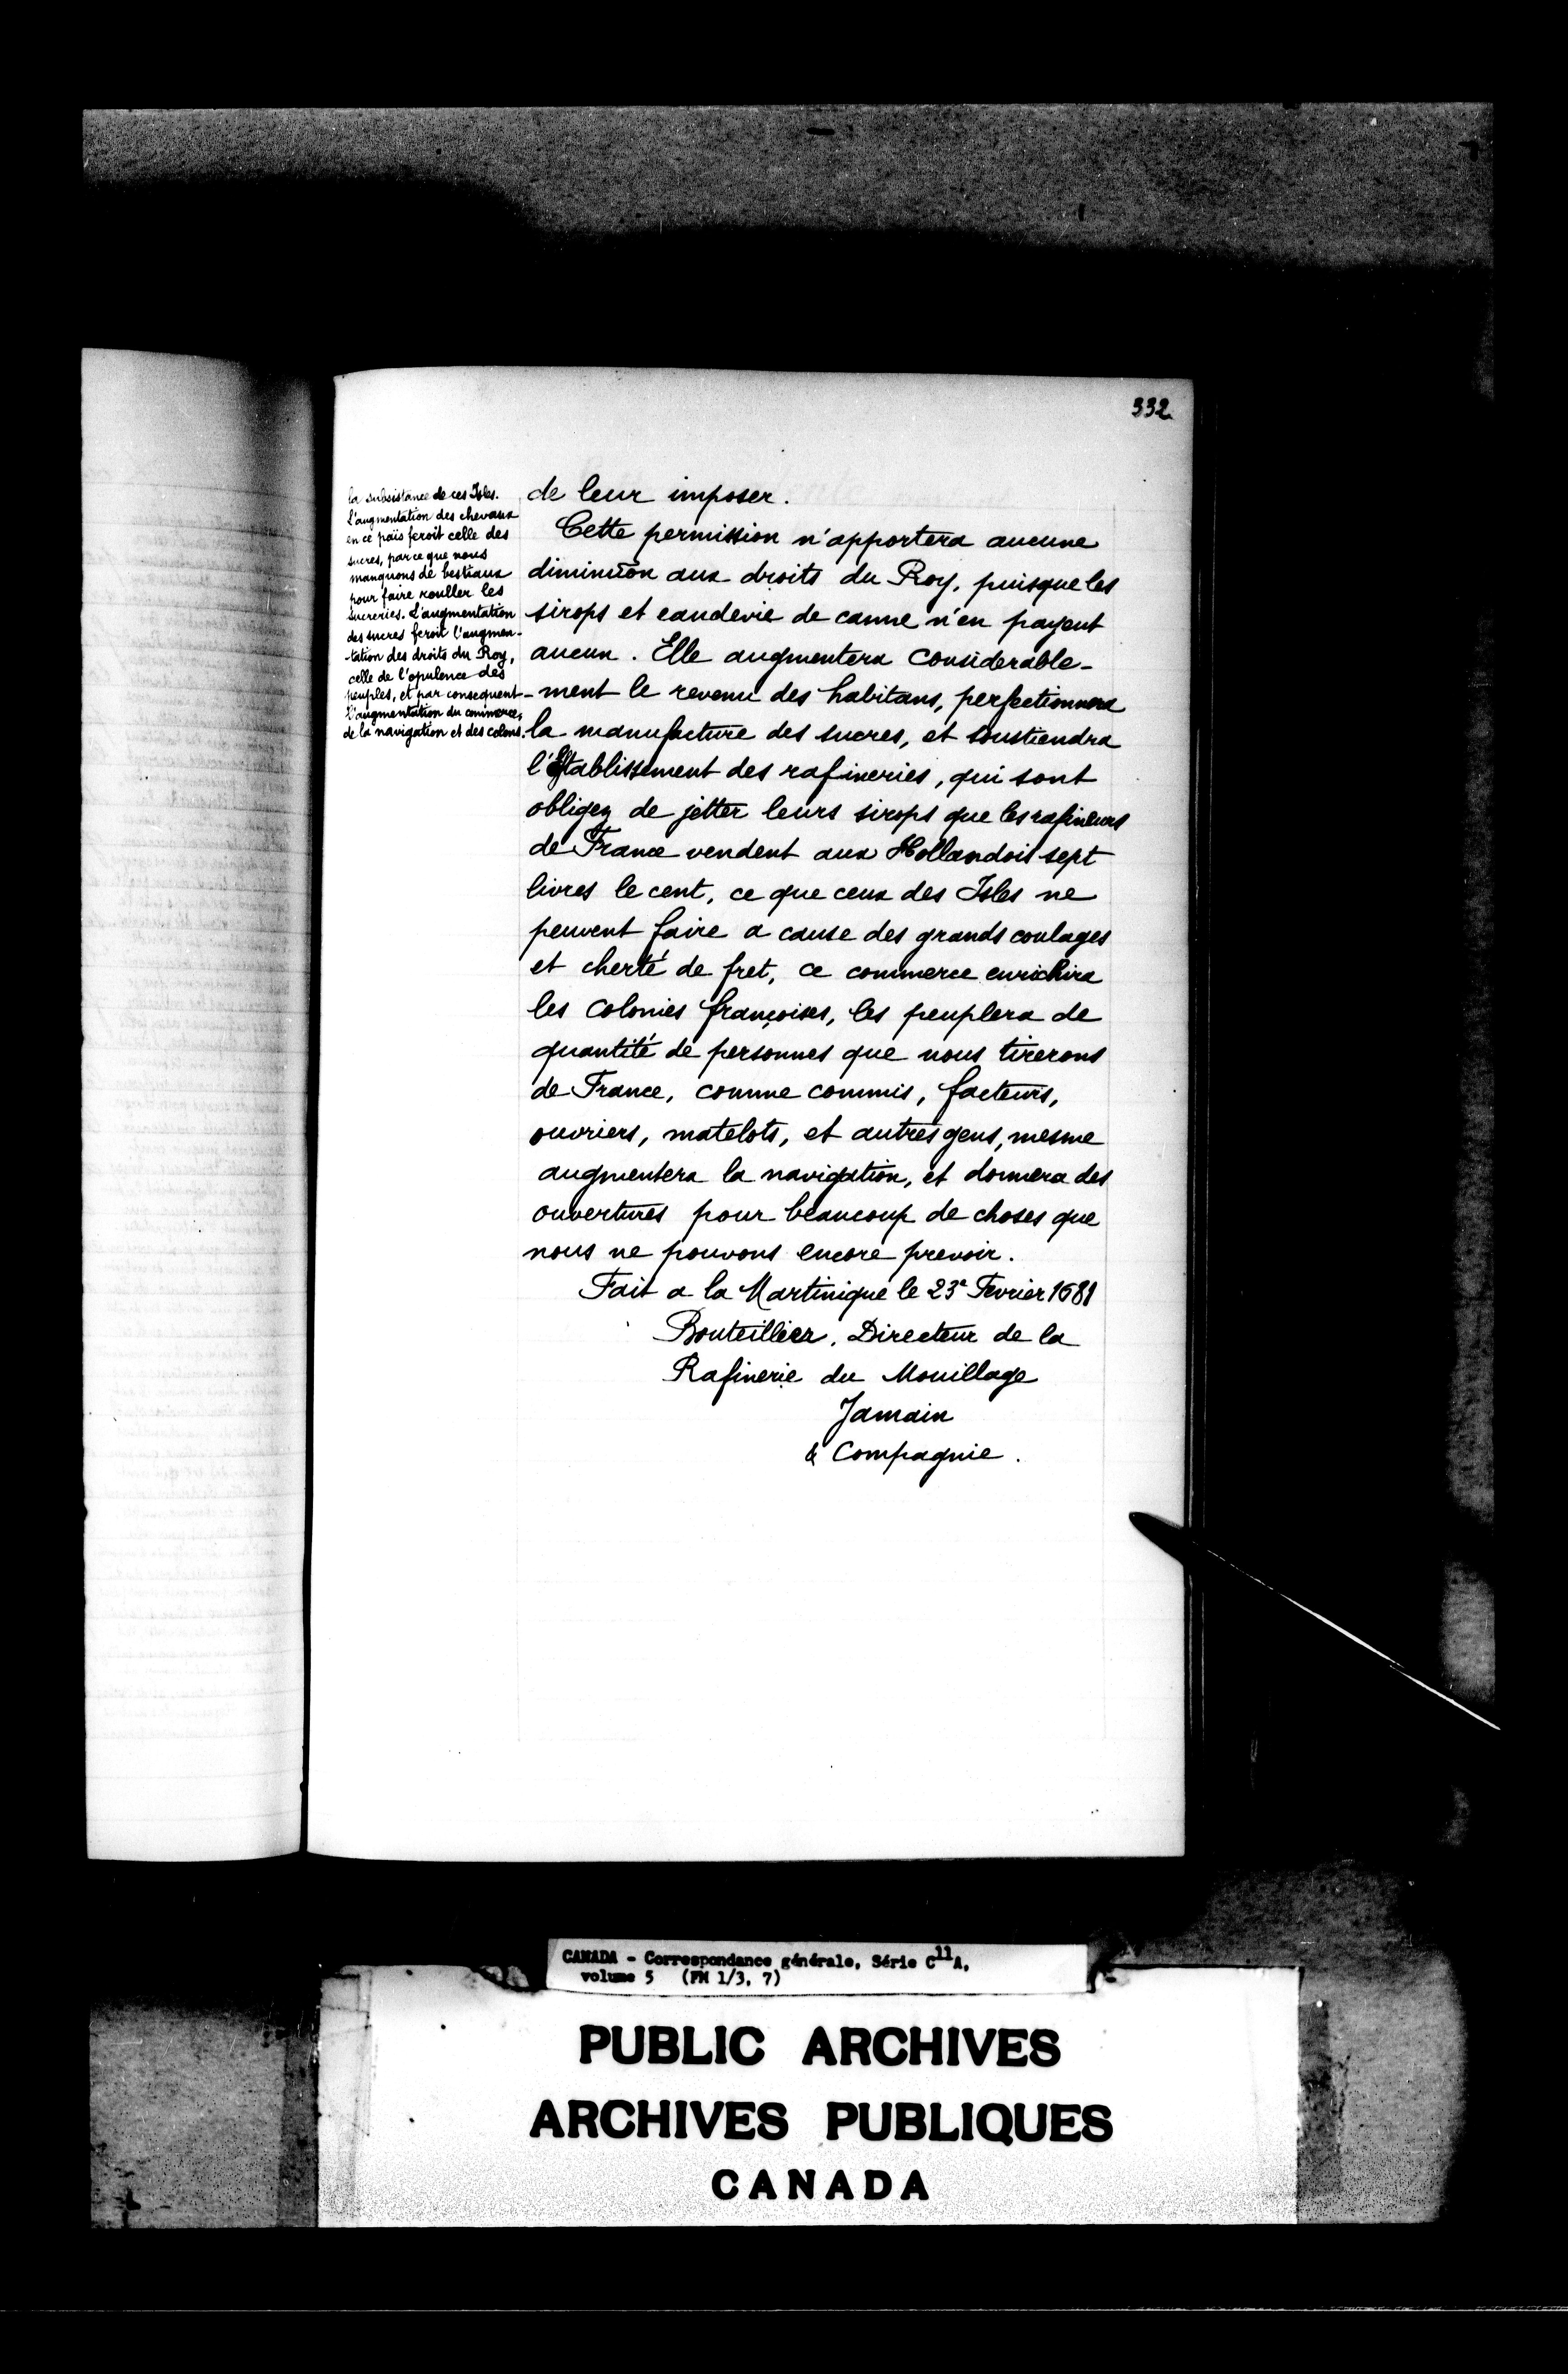 332
la subsistance de ces Isles.
L'augmentation des chevaux
en ce païs feroit celle des
sucres, parce que nous
manquons de bestiaux
pour faire rouller les
sucreries. L'augmentation
des sucres feroit l'augmen-
-tation des droits du Roy,
celle de l'opulence des
peuples, et par consequent
l'augmentation du commerce,
de la navigation et des colons.
de leur imposer.
Cette permission n'apportera aucune
diminuõn aux droits du Roy, puisque les
sirops et eaudevie de canne n'en payent
aucun. Elle augmentera considerable-
-ment le revenu des habitans, perfectionnera
la manufacture des sucres, et soustiendra
l'Establissement des rafineries, qui sont
obligez de jetter leurs sirops que les rafineurs
de France vendent aux Hollandois sept
livres le cent, ce que ceux des Isles ne
peuvent faire a cause des grands coulages
et cherté de fret, ce commerce enrichira
les colonies françoises, les peuplera de
quantité de personnes que nous tirerons
de France, comme commis, facteurs,
ouvriers, matelots, et autres gens, mesme
augmentera la navigation, et donnera des
ouvertures pour beaucoup de choses que
nous ne pouvons encore prevoir.
Fait a la Martinique le 23e Fevrier 1681
Bouteillier, Directeur de la
Rafinerie du Mouillage
Jamain
& Compagnie.
CANADA - Correspondance générale, Série C11A,
volume 5 (FM 1/3, 7)
PUBLIC ARCHIVES
ARCHIVES PUBLIQUES
CANADA